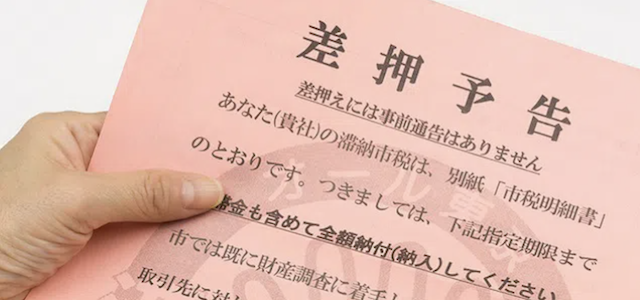 差押予告
差押えには事前通告はありません
あなた(貴社)の滞納市税は、別紙「市税明細書」
のとおりです。つきましては、下記指定期限まで
金も含めて全額納付(納入)してください
市では既に財産調査に着手し
取引先に対
オール東